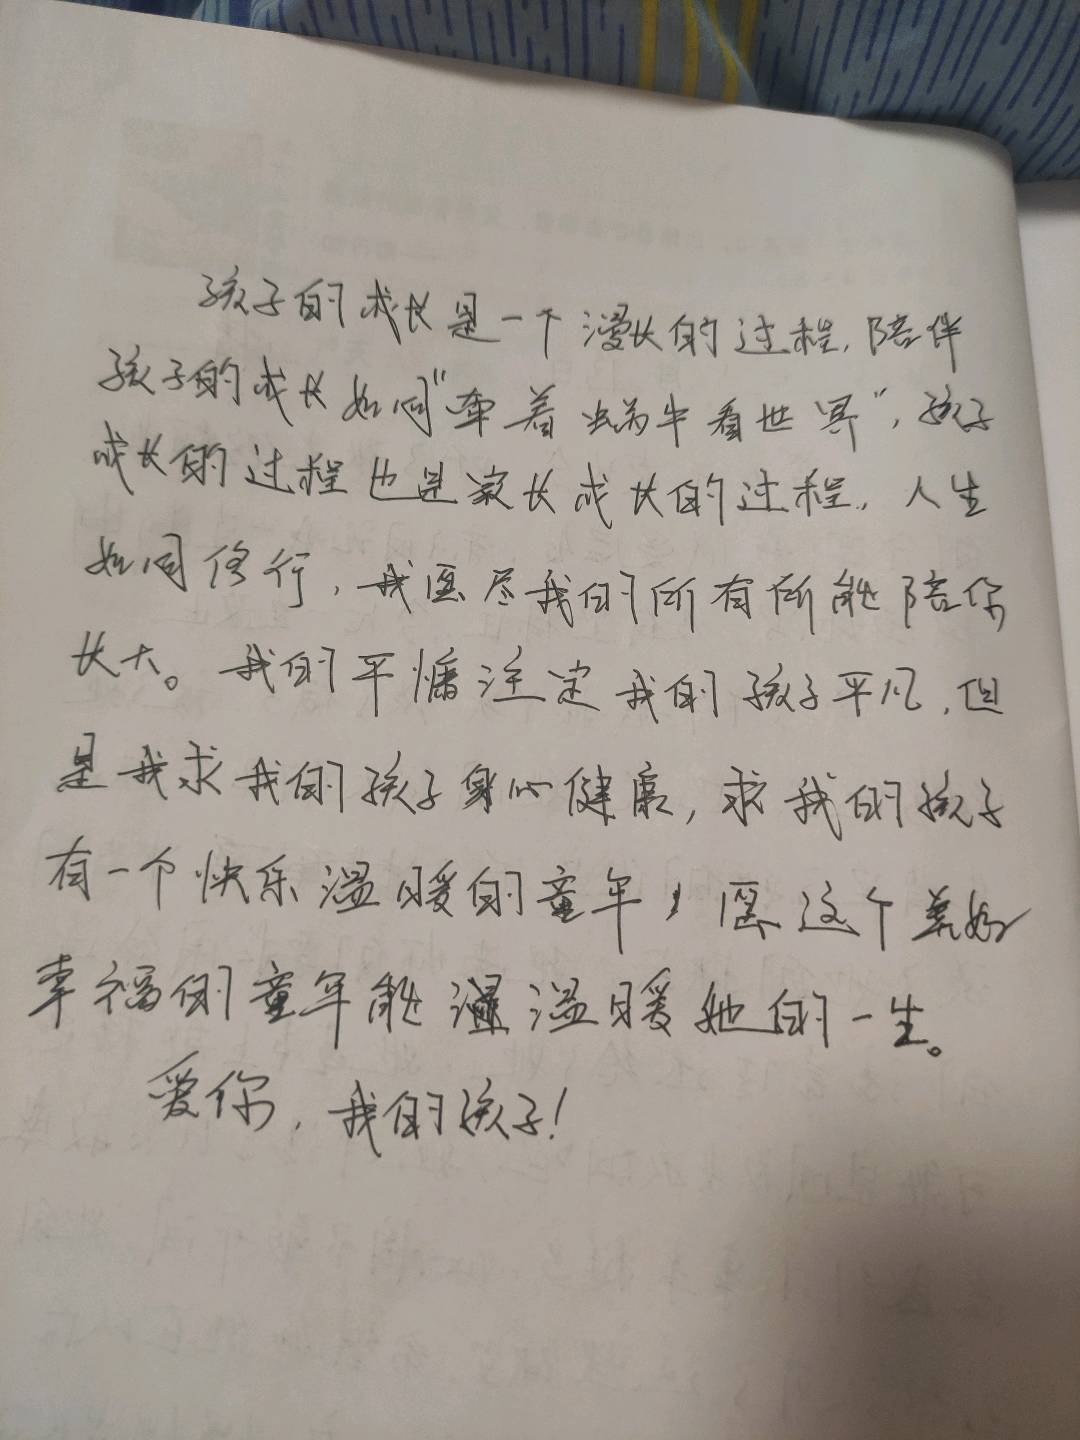 孩子的成长是一个漫长的过程,陪伴
孩子的成长如同“牵着蜗牛看世界”,孩子
成长的过程也是家长成长的过程,人生
如同修行,我愿尽我的所有所能陪你
长大。我的平慵注定我的孩子平凡,但
是我求我的孩子身心健康,求我的孩子
有一个快乐温暖的童年,愿这个美好
幸福的童年能温暖她的一生。
爱你,我的孩子!